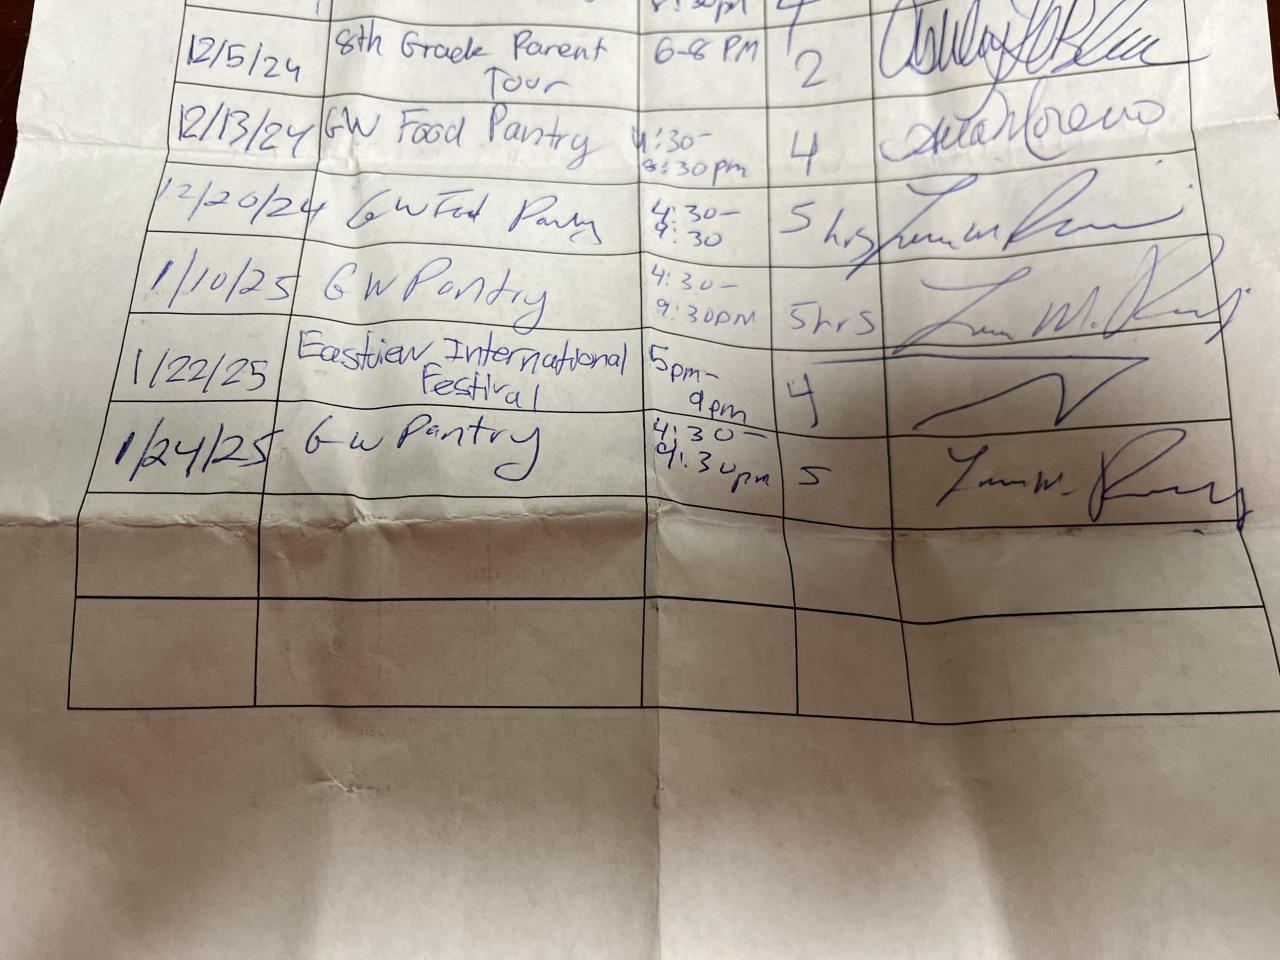 8:30pm 4
12/5/24 8th Grade Parent Tour 6-8 PM 2
12/13/24 GW Food Pantry 4:30-8:30pm 4 Moreno
12/20/24 GW Food Pantry 4:30-9:30 5 hrs
1/10/25 GW Pantry 4:30-9:30pm 5hrs
1/22/25 Eastview International Festival 5pm-9pm 4
1/24/25 GW Pantry 4:30-9:30pm 5